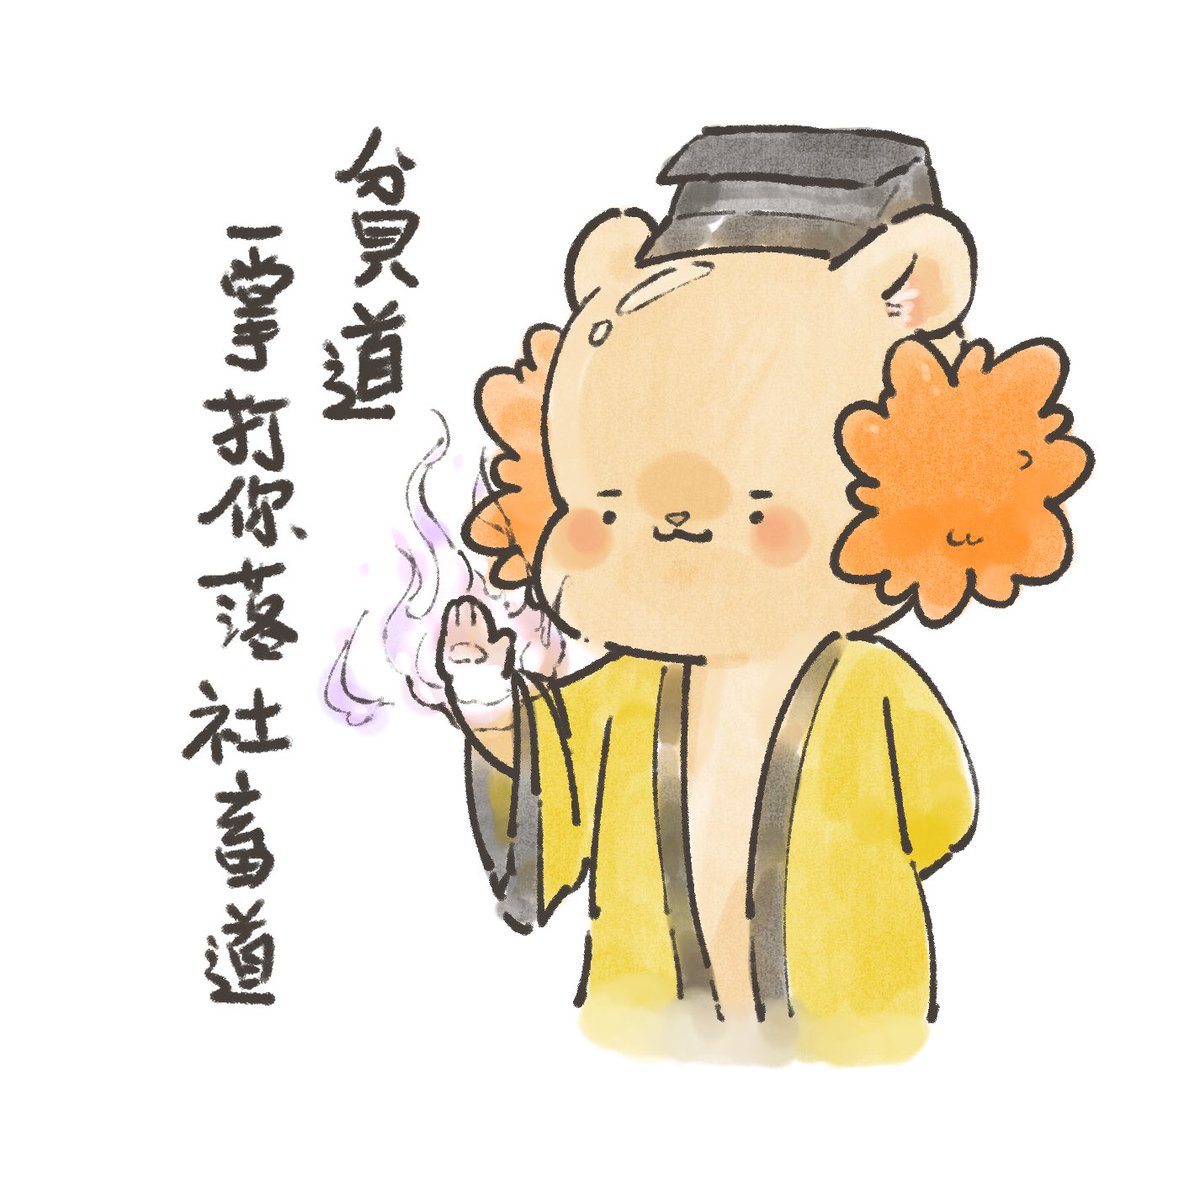 貧道
一掌打你落社畜道